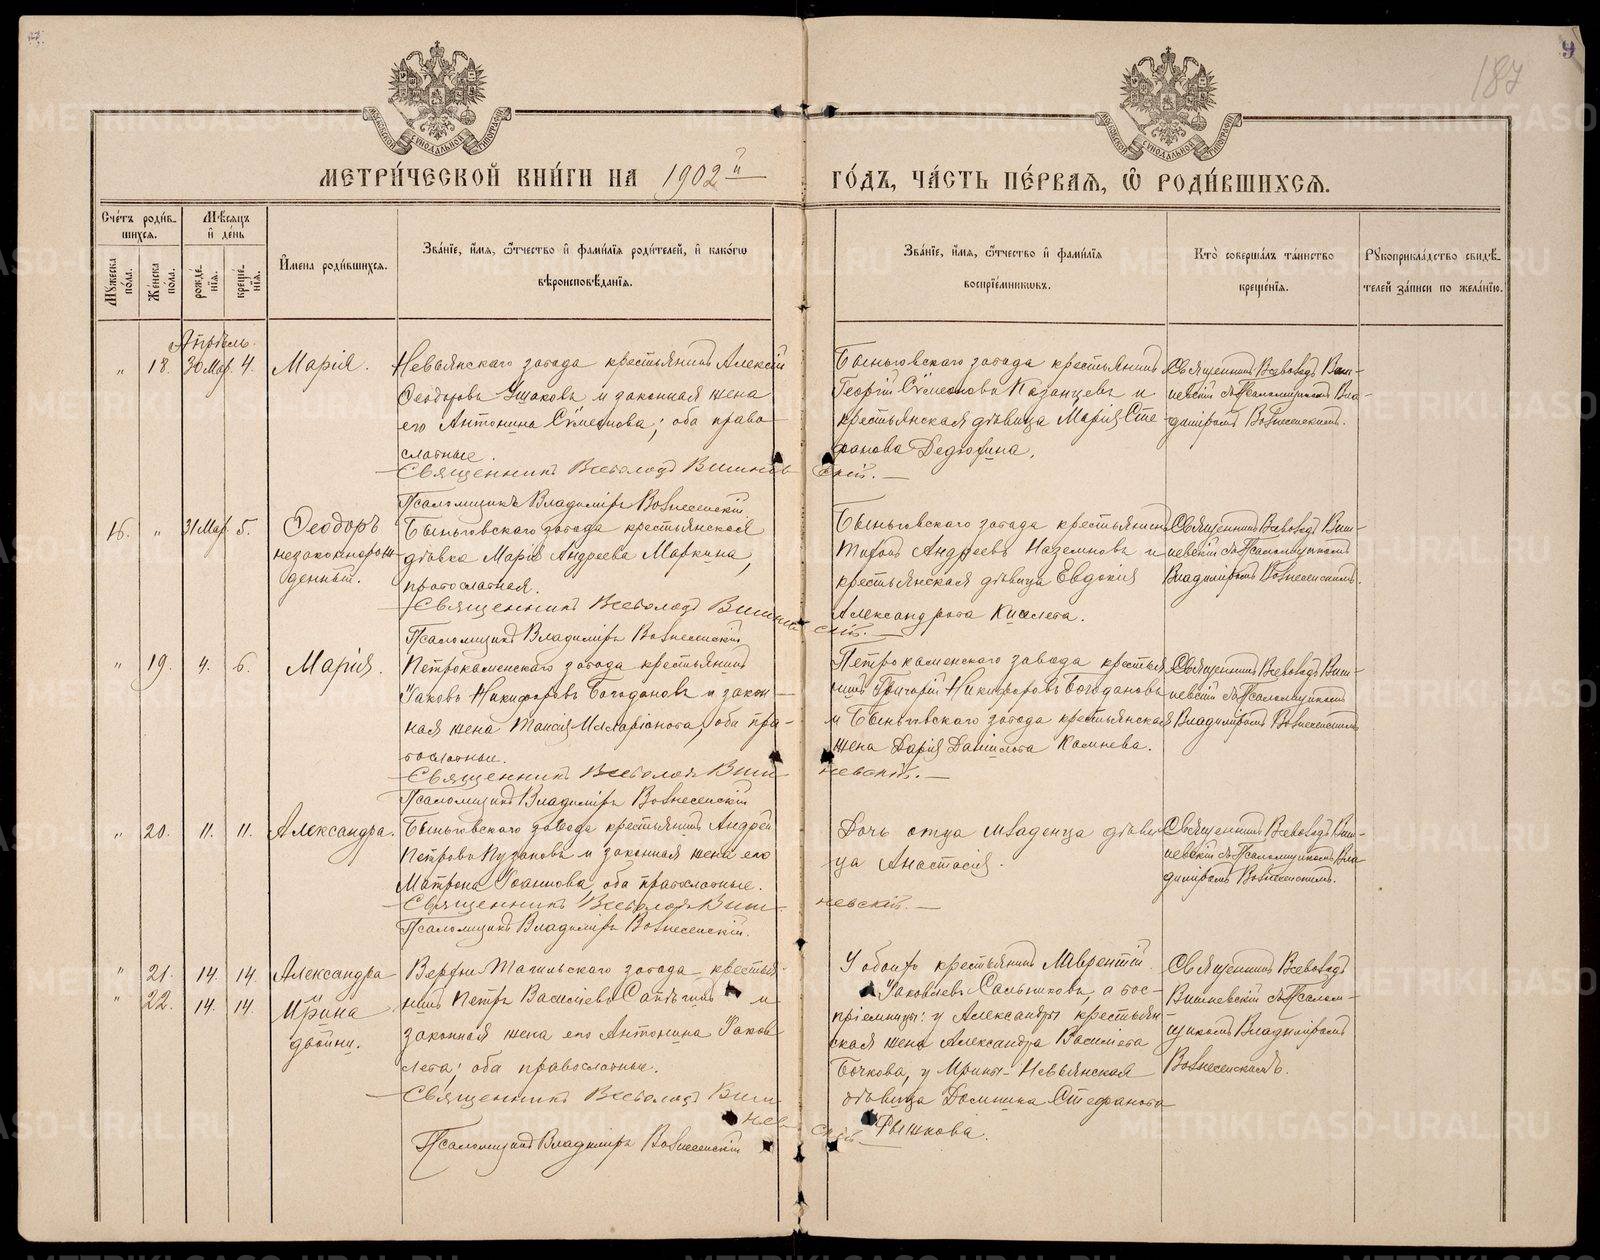 187
9
МОСКОВСКОЙ СѴНОДАЛЬНОЙ ТИПОГРАФІИ
МОСКОВСКОЙ СѴНОДАЛЬНОЙ ТИПОГРАФІИ
МЕТРИ́ЧЕСКОЙ КНИ́ГИ НА 1902й
ГО́ДЪ, ЧА́СТЬ ПЕ́РВАѦ, Ѽ РОДИ́ВШИХСѦ.
Сче́тъ роди́в-
шихсѧ.
Мужеска по́ла.
Же́нска по́ла.
Мѣ́сѧцъ
и҆ де́нь
рожде́-
нїѧ.
креще́-
нїѧ.
И҆мена роди́вшихсѧ.
Зва́нїе, и҆́мѧ, ѻ҆́тчество и҆ фами́лїѧ роди́телей, и҆ како́гѡ
вѣроисповѣ́данїѧ.
Зва́нїе, и҆́мѧ, ѻ҆́тчество и҆ фами́лїѧ
воспрїе́мникѡвъ.
Кто̀ соверша́лъ та́инство
креще́нїѧ.
Рукоприкла́дство свидѣ́-
телей за́писи по жела́нїю.
Апрѣль.
" 18. 30 Мар. 4. Марія.
Невьянскаго завода крестьянинъ Алексій
Ѳеодоровъ Ушаковъ и законная жена
его Антонина Сѵмеонова; оба право-
славные.
Священникъ Всеволодъ Вишнев-
скій.
Псаломщикъ Владиміръ Вознесенскій
Быньговскаго завода крестьянинъ
Георгій Сѵмеоновъ Казанцевъ и
крестьянская дѣвица Марія Сте-
фанова Дедюхина.
Священникъ Всеволодъ Виш-
невскій съ Псаломщикомъ Вла-
диміромъ Вознесенскимъ.
15. " 31 Мар. 5. Ѳеодоръ
незаконнорож-
денный.
Быньговскаго завода крестьянская
дѣвка Марія Андреева Маркина,
православная.
Священникъ Всеволодъ Вишнев-
скій.
Псаломщикъ Владиміръ Вознесенскій
Быньговскаго завода крестьянинъ
Андреевъ и
крестьянская дѣвица Евдокія
Александрова Киселева.
Священникъ Всеволодъ Виш-
невскій съ Псаломщикомъ
Владиміромъ Вознесенскимъ.
" 19. 4. 6. Марія.
Петрокаменскаго завода крестьянинъ
Іаковъ Никифоровъ Богдановъ и закон-
ная жена Таисія Илларіонова; оба пра-
вославные.
Священникъ Всеволодъ Виш-
невскій.
Псаломщикъ Владиміръ Вознесенскій
Петрокаменскаго завода крестья-
нинъ Григорій Никифоровъ Богдановъ
и Быньговскаго завода крестьянская
жена Дарія Даніилова Камнева.
Священникъ Всеволодъ Виш-
невскій съ Псаломщикомъ
Владиміромъ Вознесенскимъ
" 20. 11. 11. Александра.
Быньговскаго завода крестьянинъ Андрей
Петровъ Пузановъ и законная жена его
Матрона Іоаннова, оба православные.
Священникъ Всеволодъ Виш-
невскій.
Псаломщикъ Владиміръ Вознесенскій.
Дочь отца младенца дѣви-
ца Анастасія.
Священникъ Всеволодъ Виш-
невскій съ Псаломщикомъ Вла-
диміромъ Вознесенскимъ.
" 21. 14. 14. Александра
" 22. 14. 14. Ирина
двойни.
Верхне-Тагильскаго завода крестья-
нинъ Петръ Васильевъ и
законная жена его Антонина Іаков-
лева; оба православные.
Священникъ Всеволодъ Виш-
нев-
скій
Псаломщикъ Владиміръ Вознесенскій
У обоихъ крестьянинъ Лаврентій
Іаковлевъ Сальниковъ, а вос-
пріемницы: у Александры крестьян-
ская жена Александра Васильева
Бочкова, у Ирины - Невьянская
дѣвица Домника Стефанова
Рышкова.
Священникъ Всеволодъ
Вишневскій съ Псалом-
щикомъ Владиміромъ
Вознесенскимъ.
METRIKI.GASO-URAL.RU